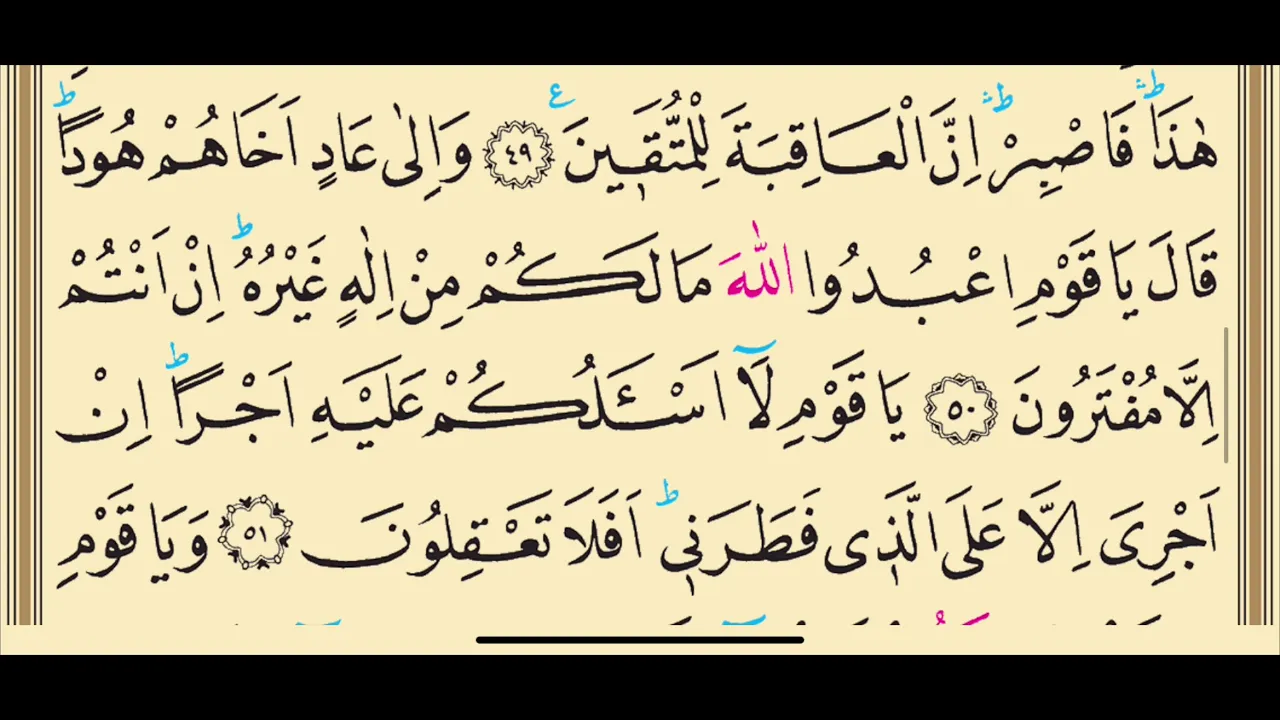 هٰذَاۜ فَاصْبِرْۜ اِنَّ الْعَاقِبَةَ لِلْمُتَّقٖينَ ࣖ ﴿٤٩﴾ وَاِلٰى عَادٍ اَخَاهُمْ هُودًاؕ
قَالَ يَا قَوْمِ اعْبُدُوا اللّٰهَ مَا لَكُمْ مِنْ اِلٰهٍ غَيْرُهُؕ اِنْ اَنْتُمْ
اِلَّا مُفْتَرُونَ ﴿٥٠﴾ يَا قَوْمِ لَٓا اَسْـَٔلُكُمْ عَلَيْهِ اَجْرًاؕ اِنْ
اَجْرِىَ اِلَّا عَلَى الَّذٖى فَطَرَنٖىؕ اَفَلَا تَعْقِلُونَ ﴿٥١﴾ وَيَا قَوْمِ